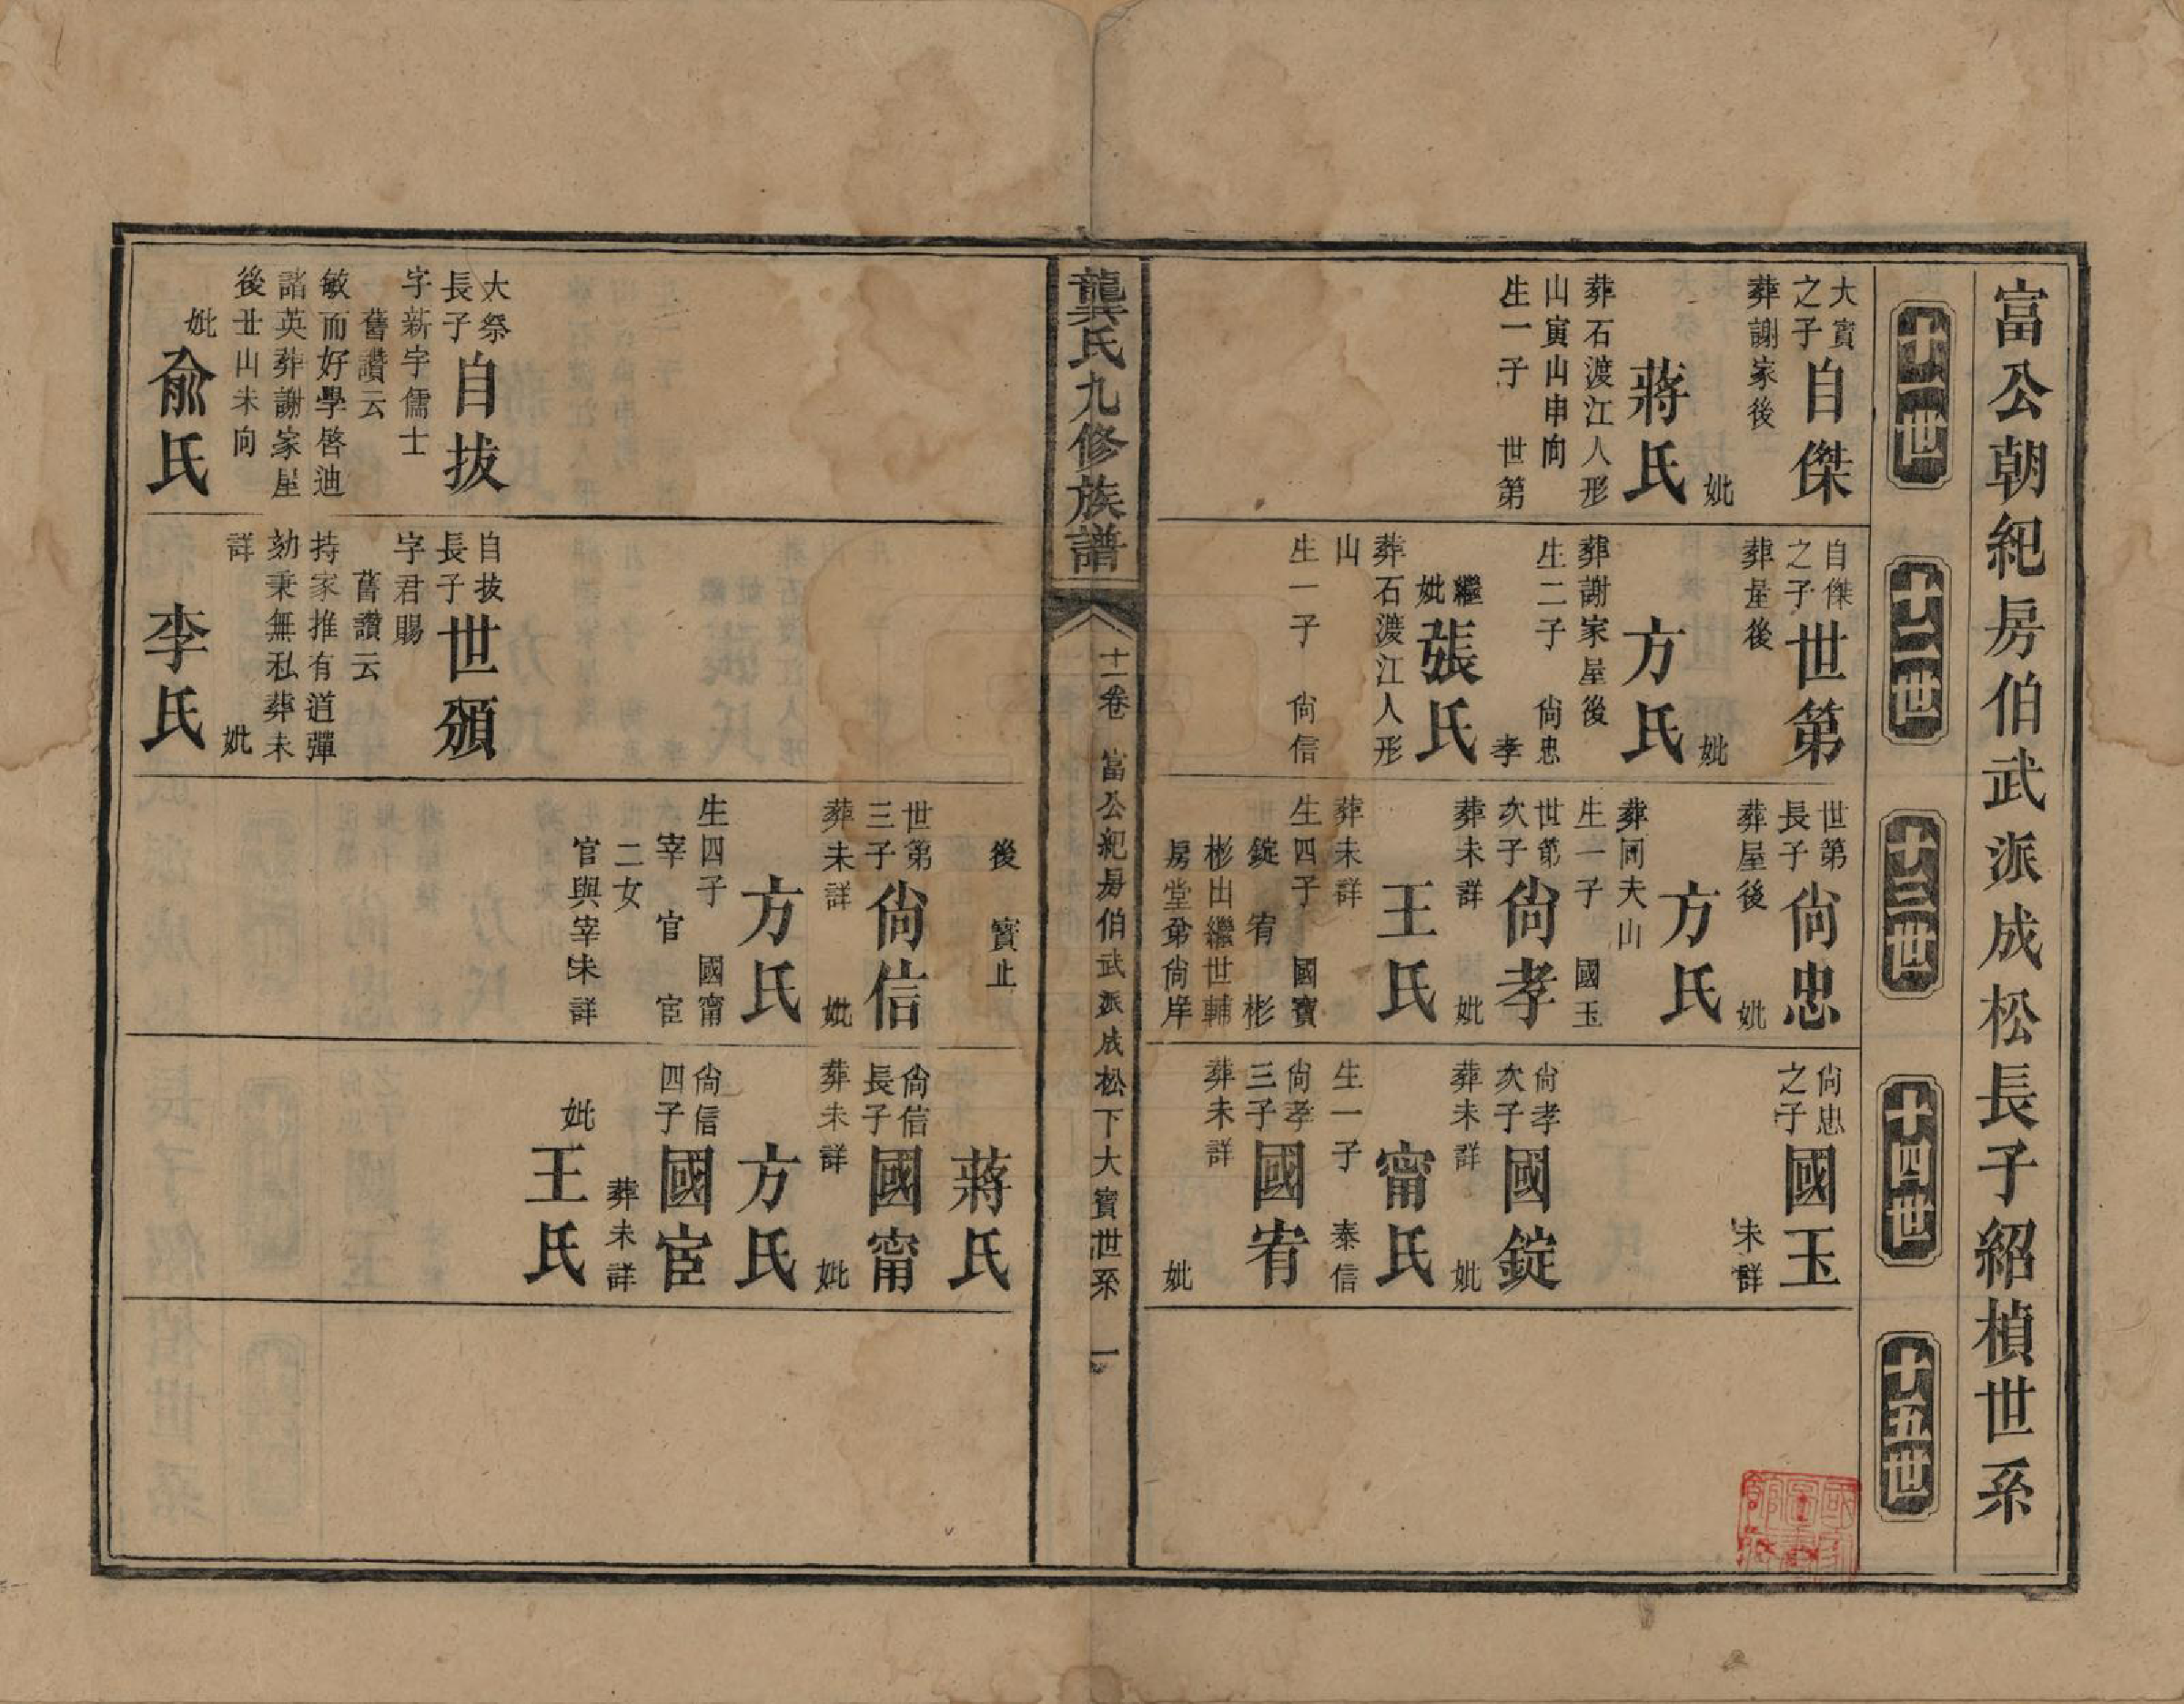 富公朝紀房伯武派成松長子紹楨世系
十一世
十二世
十三世
十四世
十五世
大寶
之子
自傑
葬謝家後
妣
蔣氏
葬石渡江人形
山寅山申向
生一子 世第
自傑
之子
世第
葬屋後
妣
方氏
葬謝家屋後
生二子 尙忠
孝
繼
妣
張氏
葬石渡江人形
山
生一子 尙信
世第
長子
尙忠
葬屋後
妣
方氏
葬同夫山
生一子 國玉
世第
次子
尙孝
葬未詳
妣
王氏
葬未詳
生四子 國寶
錠 宥 彬
彬出繼世輔
房堂弟尙岸
尙忠
之子
國玉
未詳
尙孝
次子
國錠
葬未詳
妣
甯氏
生一子 泰信
尙孝
三子
國宥
葬未詳
妣
龔氏九修族譜
十一卷 富公紀房伯武派成松下大寶世系 一
大祭
長子
自拔
字新宇儒士
舊讚云
敏而好學啓迪
諸英葬謝家屋
後丑山未向
妣
兪氏
自拔
長子
世頒
字君賜
舊讚云
持家推有道彈
劾秉無私葬未
詳
妣
李氏
後 寶止
世第
三子
尙信
葬未詳
妣
方氏
生四子 國甯
宰 官 宦
二女
官與宰未詳
蔣氏
尙信
長子
國甯
葬未詳
妣
方氏
尙信
四子
國宦
葬未詳
妣
王氏